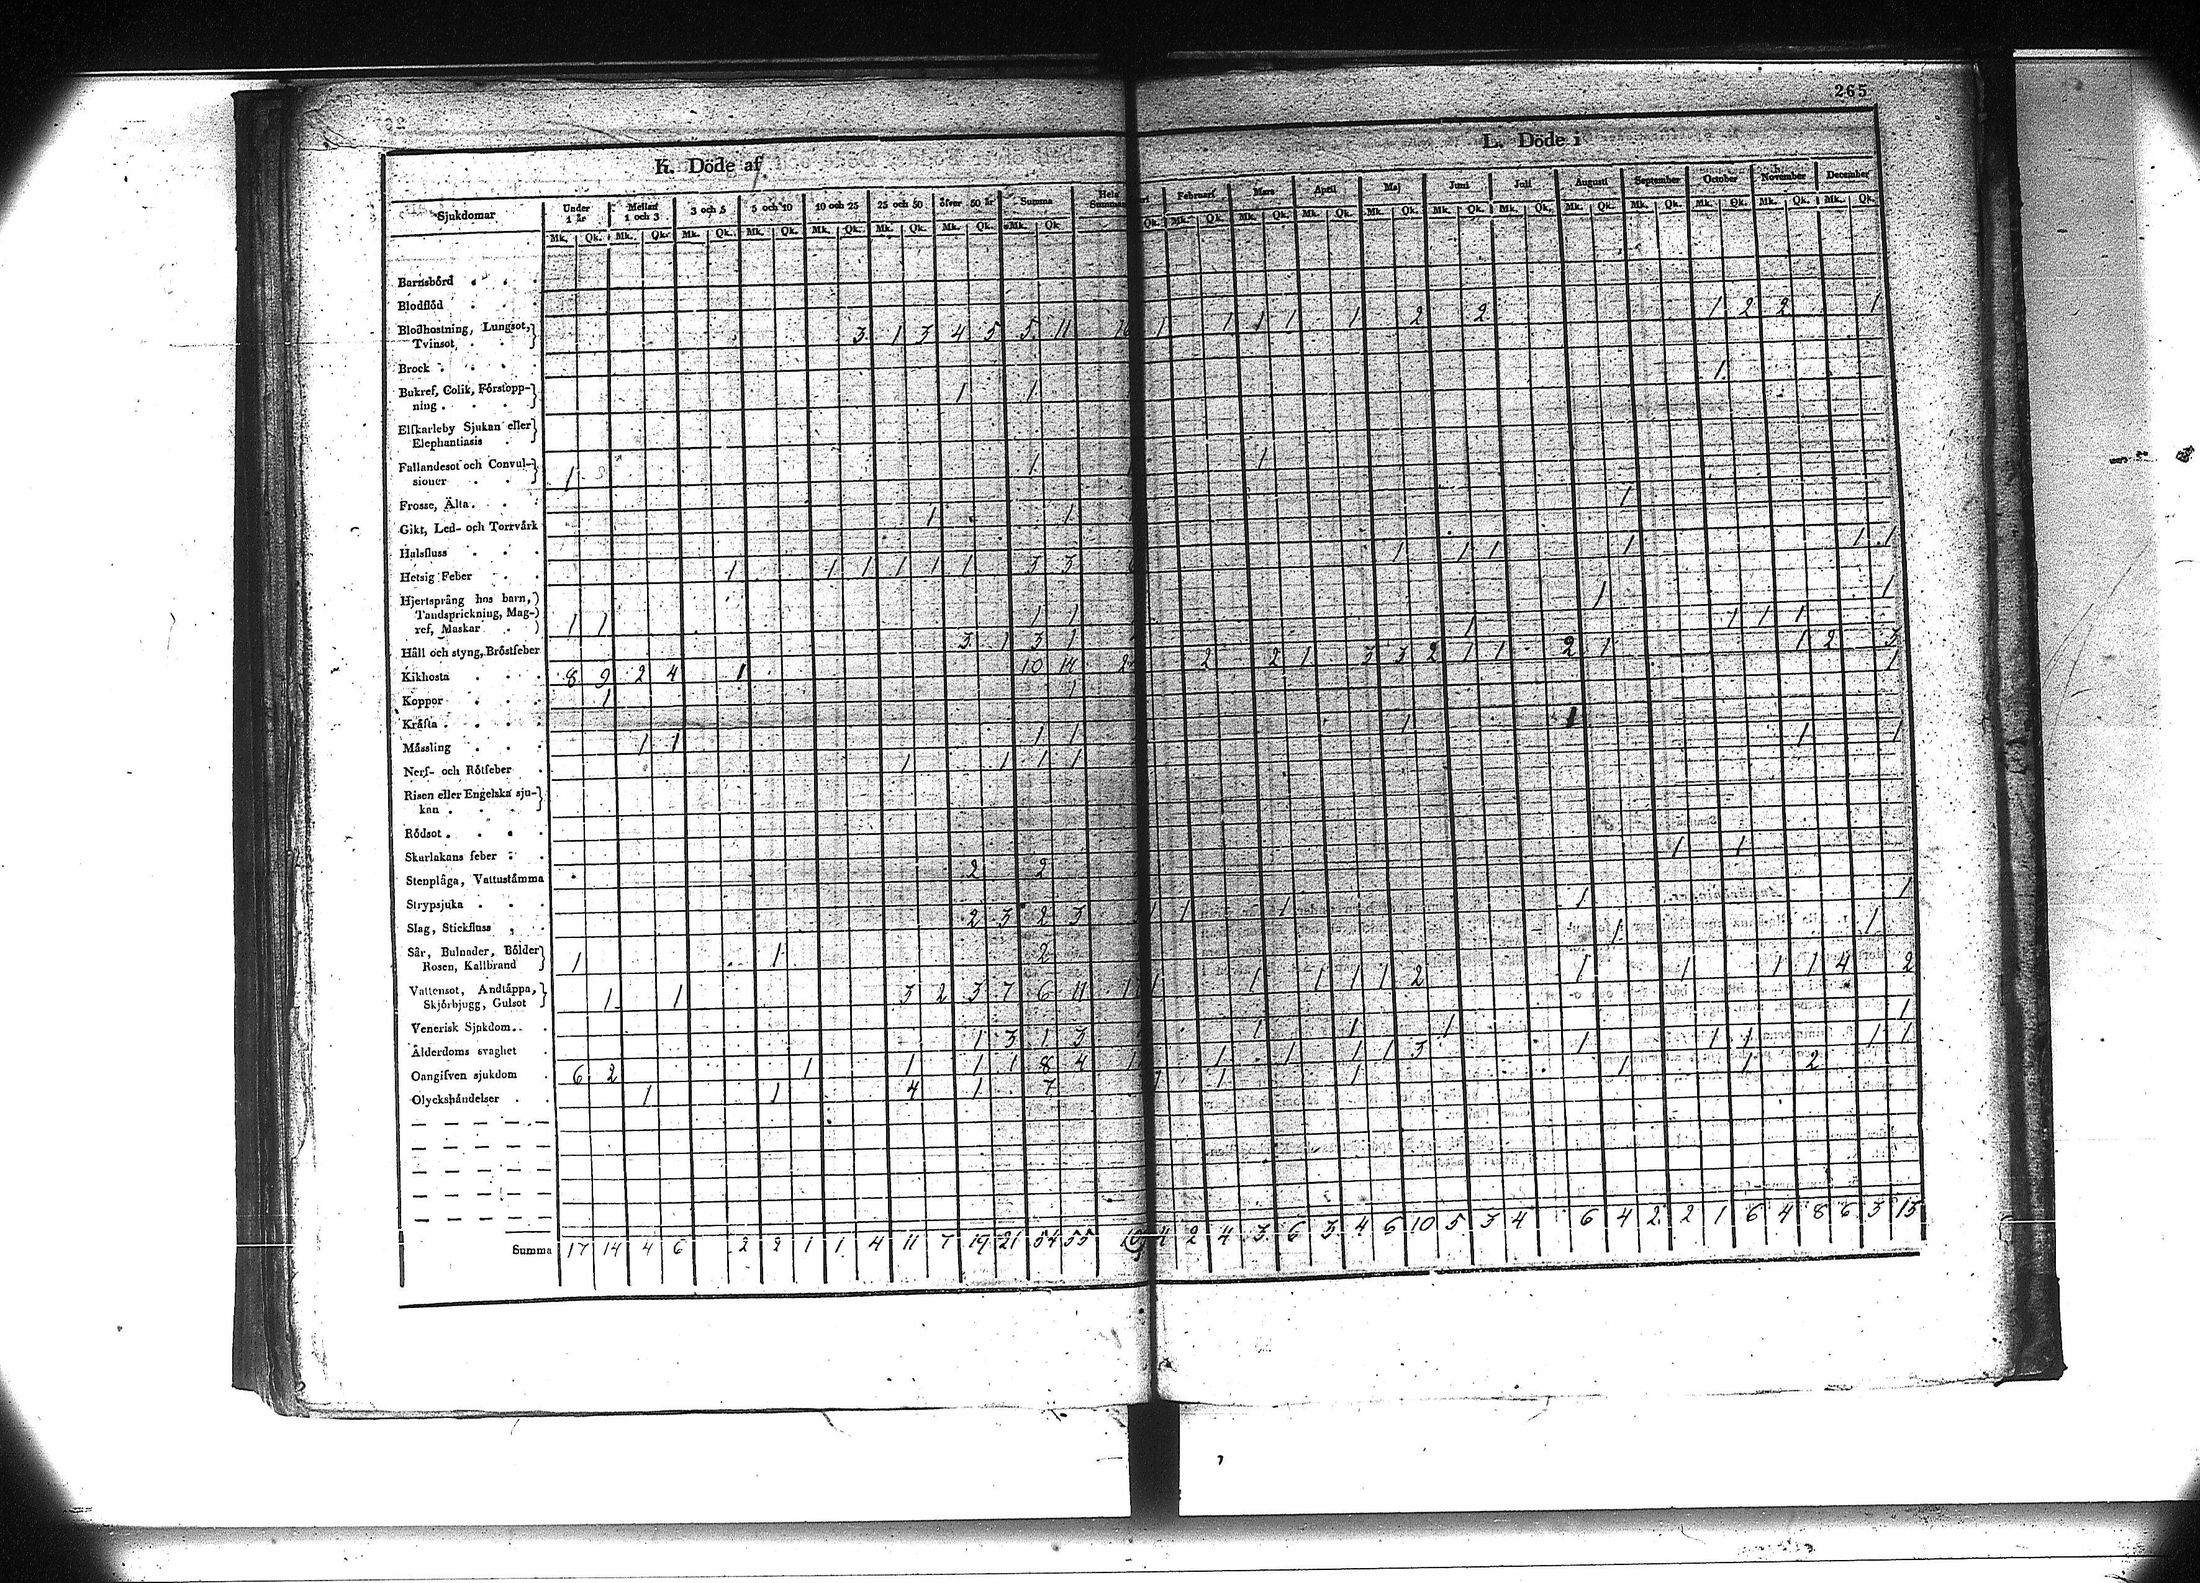 265
K. Döde af
L. Döde i
Sjukdomar Under 1 år Mellan 1 och 3 3 och 5 5 och 10 10 och 25 25 och 50 öfver 50 år Summa Hela Summan Februari Mars April Maj Juni Juli Augusti September October November December
Mk. Qk. Mk. Qk. Mk. Qk. Mk. Qk. Mk. Qk. Mk. Qk. Mk. Qk. Mk. Qk. Qk. Mk. Qk. Mk. Qk. Mk. Qk. Mk. Qk. Mk. Qk. Mk. Qk. Mk. Qk. Mk. Qk. Mk. Qk. Mk. Qk. Mk. Qk.
Barnsbörd
Blodflöd
Blodhostning, Lungsot,
Tvinsot 3 1 3 4 5 5 11 1 1 1 1 1 2 2 1 2 2 1
Brock
Bukref, Colik, Förstopp-
ning 1 1 1
Elfkarleby Sjukan eller
Elephantiasis
Fallandesot och Convul-
sioner 1 1 1
Frosse, Älta
Gikt, Led- och Torrvärk 1 1 1
Halsfluss
Hetsig Feber 1 1 1 1 1 1 3 3 1 1 1 1 1 1
Hjertsprång hos barn,
Tandsprickning, Mag-
ref, Maskar 1 1 1 1 1 1
Håll och styng, Bröstfeber 3 1 3 1 1 1 1 1
Kikhosta 8 9 2 4 1 10 14 2 2 1 3 3 2 1 1 2 1 1 2 3
Koppor 1 1 1
Kräfta
Mässling 1 1 1 1 1 1
Nerf- och Rötfeber 1 1 1 1 1 1
Risen eller Engelska sju-
kan
Rödsot
Skarlakans feber
Stenplåga, Vattustämma 2 2 1 1
Strypsjuka
Slag, Stickfluss 2 3 2 3 1 1 1 1 1
Sår, Bulnader, Bölder
Rosen, Kallbrand 1 1 2 1 1
Vattensot, Andtäppa,
Skjörbjugg, Gulsot 1 1 3 2 3 7 6 11 1 1 1 1 1 2 1 1 1 1 4 2
Venerisk Sjukdom
Ålderdoms svaghet 1 3 1 3 1 1 1 1
Oangifven sjukdom 6 2 1 1 1 1 8 4 1 1 1 1 3 1 1 1 1 1
Olyckshändelser 1 1 4 1 7 1 1 1 1 1 2
Summa 17 14 4 6 2 2 1 1 4 11 7 19 21 54 55 2 4 3 6 3 4 6 10 5 3 4 6 4 2 2 1 6 4 8 6 3 13